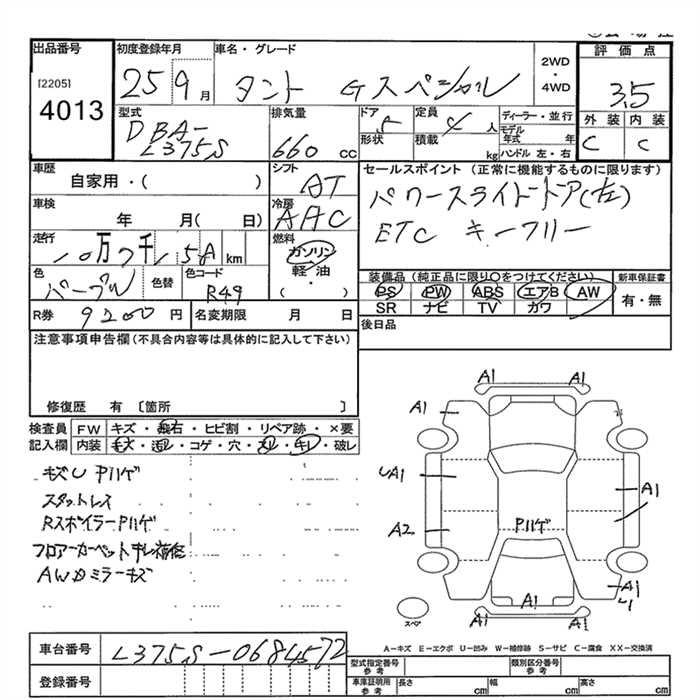 出品番号 初度登録年月 車名・グレード 2WD・4WD 評価点
[2205]
4013
25 9月 タント Gスペシャル 3.5
型式 排気量 ドア 定員 ディーラー・並行 外装 内装
DBA-
L375S 660 cc 5 4人 形状 積載 kg モデル年式 年 ハンドル 左・右 C C
車歴 シフト セールスポイント(正常に機能するものに限ります)
自家用・( ) AT パワースライドドア(左)
車検 冷房
年 月( 日) AAC ETC キーフリー
走行 燃料
10万7千 km ガソリン
軽・油
・( )
色 色替 色コード 装備品(純品に限り○をつけてください) 新車保証書
パープル R49 PS PW ABS エアB AW 有・無
SR ナビ TV カワ
R券 9200円 名変期限 月 日 後日品
注意事項申告欄(不具合内容等は具体的に記入して下さい)
修復歴 有 〔箇所 〕
検査員 FW キズ・飛石・ヒビ割・リペア跡・×要
記入欄 内装 キズ・汚レ・コゲ・穴・スレ・キレ・破レ
キズU Pハゲ
スタットレス
RスポイラーPハゲ
フロアーカーペットキレ補修
AWカミラーキズ
A1 A1
A1
UA1 A1
A2 Pハゲ
A1
A1
A1 A1
スペア
A-キズ E-エクボ U-凹み W-補修跡 S-サビ C-腐食 XX-交換済
車台番号 L375S-0684572
登録番号
型式指定番号 参考 類別区分番号 参考
車庫証明用 参考 長さ cm 幅 cm 高さ cm